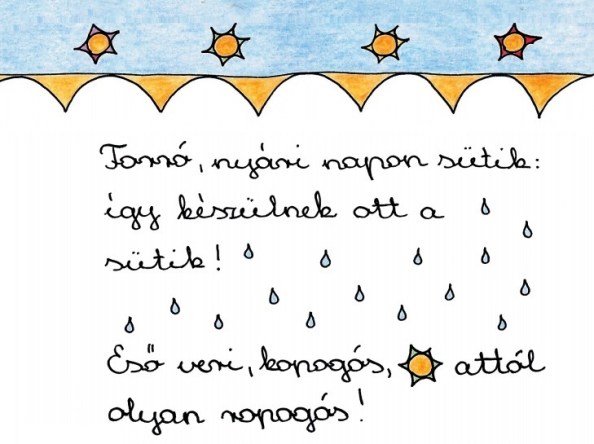 Forró, nyári napon sütik:
így készülnek ott a
sütik!
Eső veri, kopogás, attól
olyan ropogás!